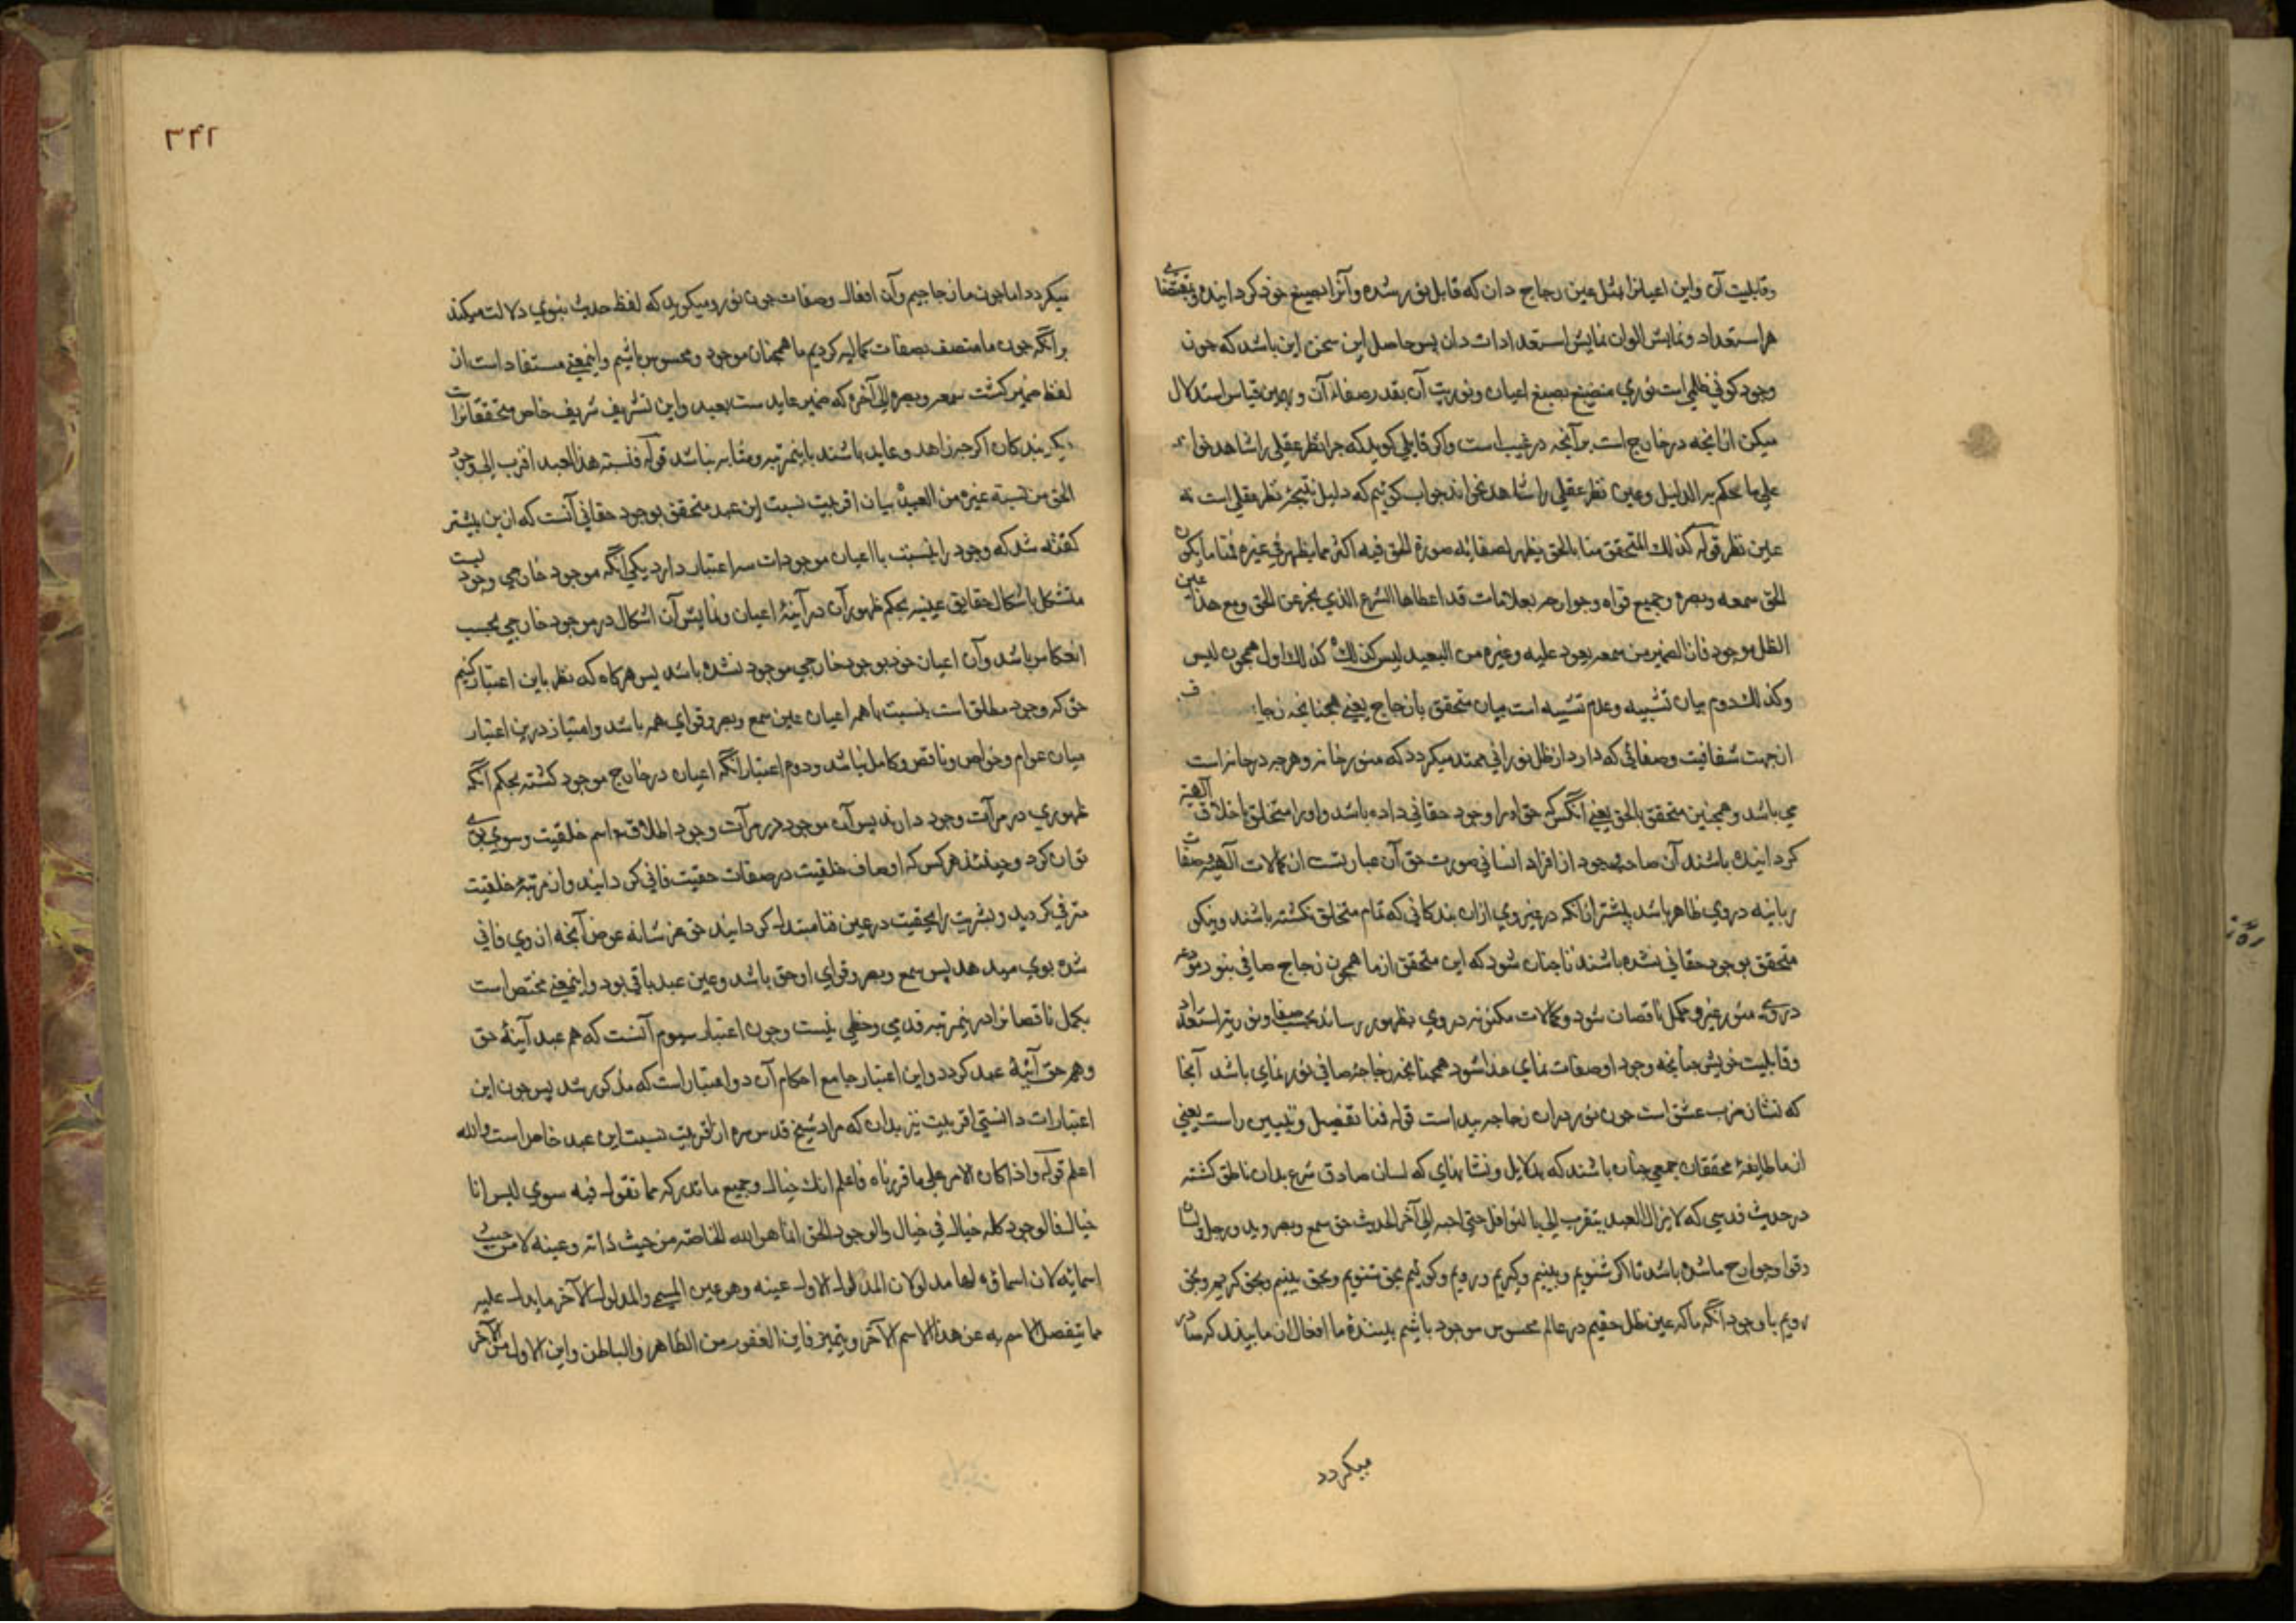 وقابلیت آن واین اعیانرا مثل عین زجاج دان که قابل نور شده وآنرا بصبغ خود کردانیده وبمقتضای
هر استعداد ونمایش الوان نمایش استعدادات دان پس حاصل این سخن این باشد که جون
وجود کونی ظلی است نوری منصبغ بصبغ اعیان ونوریت آن بقدر صفاء آن و بهمین قیاس استدلال
میکن از انجه در خارج است بر آنجه در غیب است واکر قایلی کوید که جرا نظر عقلی را شاهد خوا
علی ما حکم به الدلیل وعین نظر عقلی را شاهد نخواند جواب کوئیم که دلیل نتیجۀ نظر عقلی است نه
عین نظر قوله کذلک المتحقق منا بالحق یظهر لصفائه صورة الحق فیه اکثر مما یظهر فی غیره فمنا من یکون
الحق سمعه وبصره وجمیع قواه وجوارحه بعلامات قد اعطاها الشرع الذی یخبر عن الحق ومع هذا عین
الظل موجود فان الضمیر من سمعه یعود علیه وغیره من العبید لیس کذلک کذلک اول همجون لیس
وکذلک دوم بیان تشبیه وعدم تشبیه است میان متحقق بازجاج یعنی همجنانجه زجا
از جهت شفافیت وصفائی که دارد از ظل نورانی ممتد میکردد که منور خانه وهرجه در خانه است
می باشد وهمجنین متحقق بالحق یعنی آنکس که حق اورا وجود حقانی داده باشد واورا متخلق باخلاق الهیه
کردانیده باشند آن صاحب وجود از افراد انسانی صورت حق آن عبارتست از کمالات آلهیه وصفات
ربانیه در وی ظاهر باشد بیشتر ازانکه در غیر وی ازان بندکانی که تمام متخلق نکشته باشند ونیکو
متحقق بوجود حقانی نشده باشند تا جنان شود که این متحقق از ما همجون زجاج صافی بنور
دری منور غیر ومکمل ناقصان شود وکمالات مکنونه در وی بظهور رساند بحسب صفا ونوریة استعداد
وقابلیت خویش جنانجه وجود او صفات نمای خدا شود همجنانجه زجاجۀ صافی نور نمای باشد آنجا
که نشان مرب عشق است جون نور دران زجاجه پیداست قوله فمنا تفصیل وتبیین راست یعنی
از ما طایفۀ محققان جمعی جنان باشند که بدلایل ونشانهای که لسان صادق شرع بدان ناطق کشته
در حدیث قدسی که لا یزال العبد یتقرب الی بالنوافل حتی احبه الی آخر الحدیث حق سمع وبصر وید ورجل ولسان
وقوا وجوارح ما شده باشد تا اکر شنویم وبینیم وکیریم ورویم وکوئیم بحق شنویم وبحق بینیم وبحق کیریم وبحق
رویم با وجود آنکه ما که عین ظل حقیم در عالم محسوس موجود باشیم بینندۀ ما افعال از ما بیند که صادر
میکردد
٣٤٢
میکردد اما جون ما زجاجیم وآن افعال وصفات جون نور ومیکوید که لفظ حدیث نبوی دلالت میکند
برآنکه جون ما متصف بصفات کمالیه کردیم ما همجنان موجود ومحسوس باشیم واینمعنی مستفاد است از
لفظ ضمیر کنت سمعه وبصره الی آخره که ضمیر عاید است بعبد واین تشریف شریف خاص متحققانرا ست
دیکر بندکان اکرجه زاهد وعابد باشند باینمرتبه ومثابه نباشد قوله فنسبة هذا العبد اقرب الی وجود
الحق من نسبة غیره من العبید بیان اقربیت نسبت این عبد متحقق بوجود حقانی آنست که ازین پیشتر
کفته شد که وجود را بنسبت با اعیان موجودات سه اعتبار دارد یکی آنکه موجود خارجی وجودیست
متشکل باشکال حقایق عینیه بحکم ظهور آن در آینۀ اعیان ونمایش آن اشکال در موجود خارجی بحسب
انعکاس باشد وآن اعیان خود بوجود خارجی موجود نشده باشد پس هرکاه که نظر باین اعتبار کنیم
حق که وجود مطلق است بنسبت باهمه اعیان عین سمع وبصر وقوای همه باشد وامتیاز درین اعتبار
میان عوام وخواص وناقص وکامل نباشد ودوم اعتبار آنکه اعیان در خارج موجود کشته بحکم آنکه
ظهوری در مرآت وجود دارند پس آن موجود در مرآت وجود اطلاق اسم خلقیت وسوی برو
توان کرد وحینئذ هرکس که اوصاف خلقیت در صفات حقیت فانی کردانید واز مرتبۀ خلقیت
مترقی کردید وبشریت را بحقیت در عین فنا مبتدل کردانید حق عز شانه عوض آنجه از وی فانی
شده بوی میدهد پس سمع وبصر وقوای او حق باشد وعین عبد باقی بود واینمعنی مختص است
بکمل ناقصانرا درینمرتبه قدمی وحظی نیست وجون اعتبار سیوم آنست که هم عبد آینۀ حق
وهم حق آئینۀ عبد کردد واین اعتبار جامع احکام آن دو اعتبار است که مذکور شد پس جون این
اعتبارات دانستی اقربیت نیز بدان که مراد شیخ قدس سره از اقربیت نسبت این عبد خاص است والله
اعلم قوله واذا کان الامر علی ما قررناه فاعلم انک خیال وجمیع ما تدرکه مما تقول فیه سوی لیس انا
خیال فالوجود کله خیال فی خیال والوجود الحق انما هو الله الخاصة من حیث ذاته وعینه لا من حیث
اسمائه لان اسماؤه لها مدلولان المدلول الاول عینه وهو عین المسمی والمدلول الآخر ما یدل علیه
مما ینفصل الاسم به عن هذا الاسم الآخر ویتمیز فاین الغفور من الظاهر والباطن واین الاول من الآخر